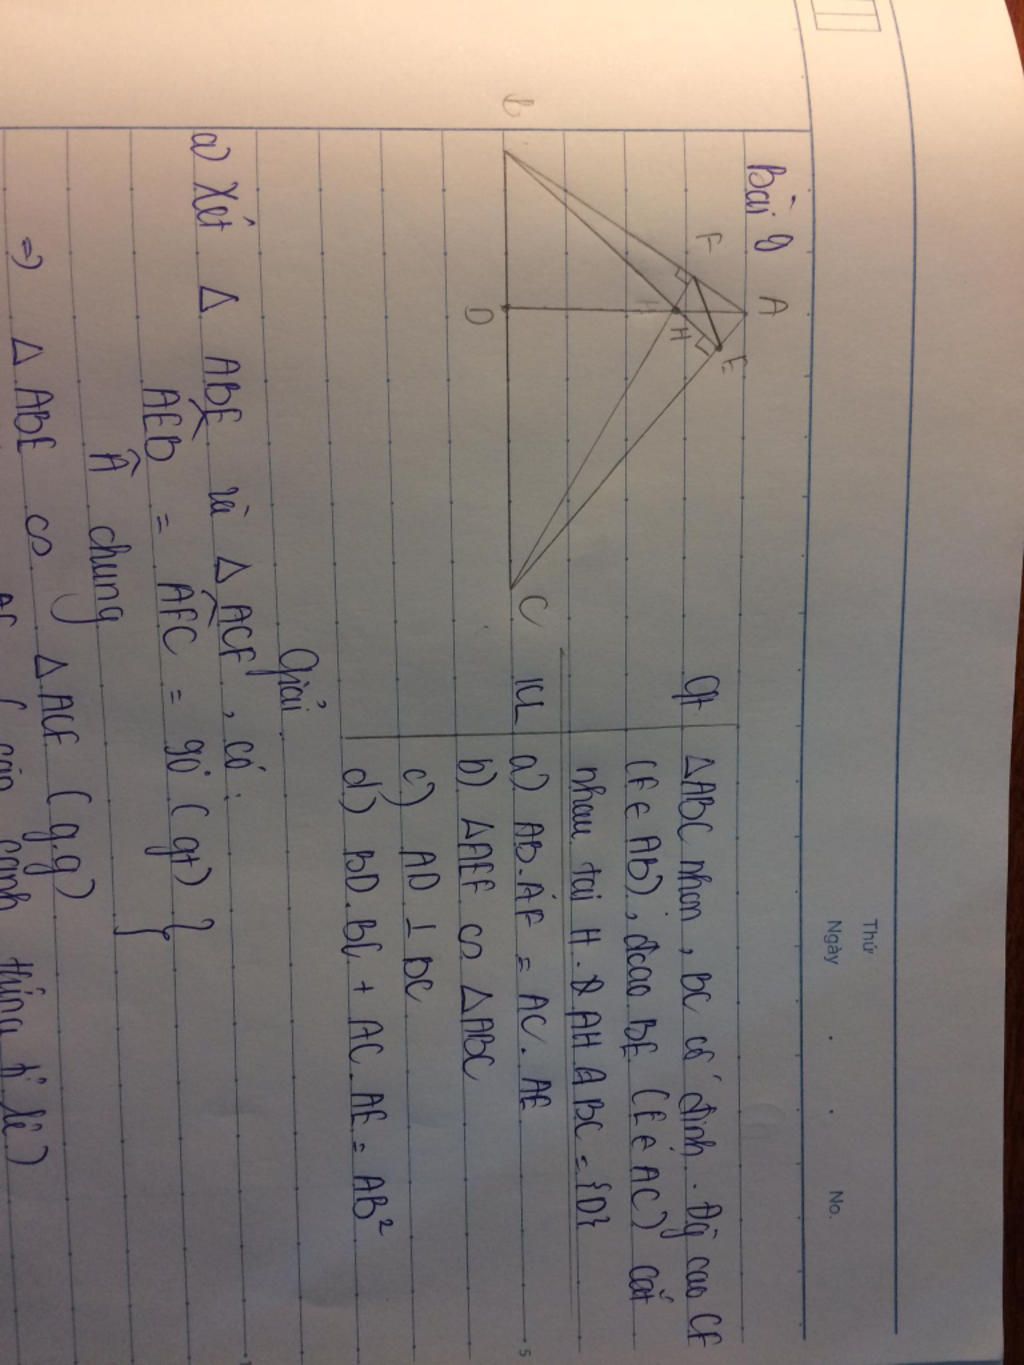 Thứ
Ngày . . No.
Bài 8
A
F
E
H
H
B
D
C
Gt ΔABC nhọn, BC cố định. Đg cao CF
(F ∈ AB), đcao BE (E ∈ AC) cắt
nhau tại H. AH ∩ BC = {D}
KL a) AB.AF = AC.AE
b) ΔAEF ∽ ΔABC
c) AD ⊥ BC
d) BD.BC + AC.AE = AB²
5
Giải
a) Xét Δ ABE và Δ ACF, có:
AEB = AFC = 90° (gt) }
Â chung }
=> Δ ABE ∽ Δ ACF (g.g)
cặp cạnh t/ứng tỉ lệ)